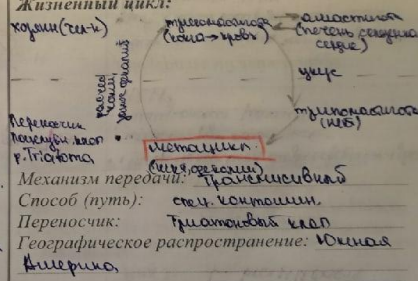 Жизненный цикл:
хозяин (чел-к)
трипомастигота
(кожа → кровь)
амастигота
(печень селезёнка
сердце)
расчёсы
кожи
фекалий
цикл
трипомастигота
Переносчик
поцелуйн клоп
р. Triatoma
метацикл.
Механизм передачи: Трансмиссивный
Способ (путь): спец. контамин.
Переносчик: Триатомовый клоп
Географическое распространение: Южная
Америка,